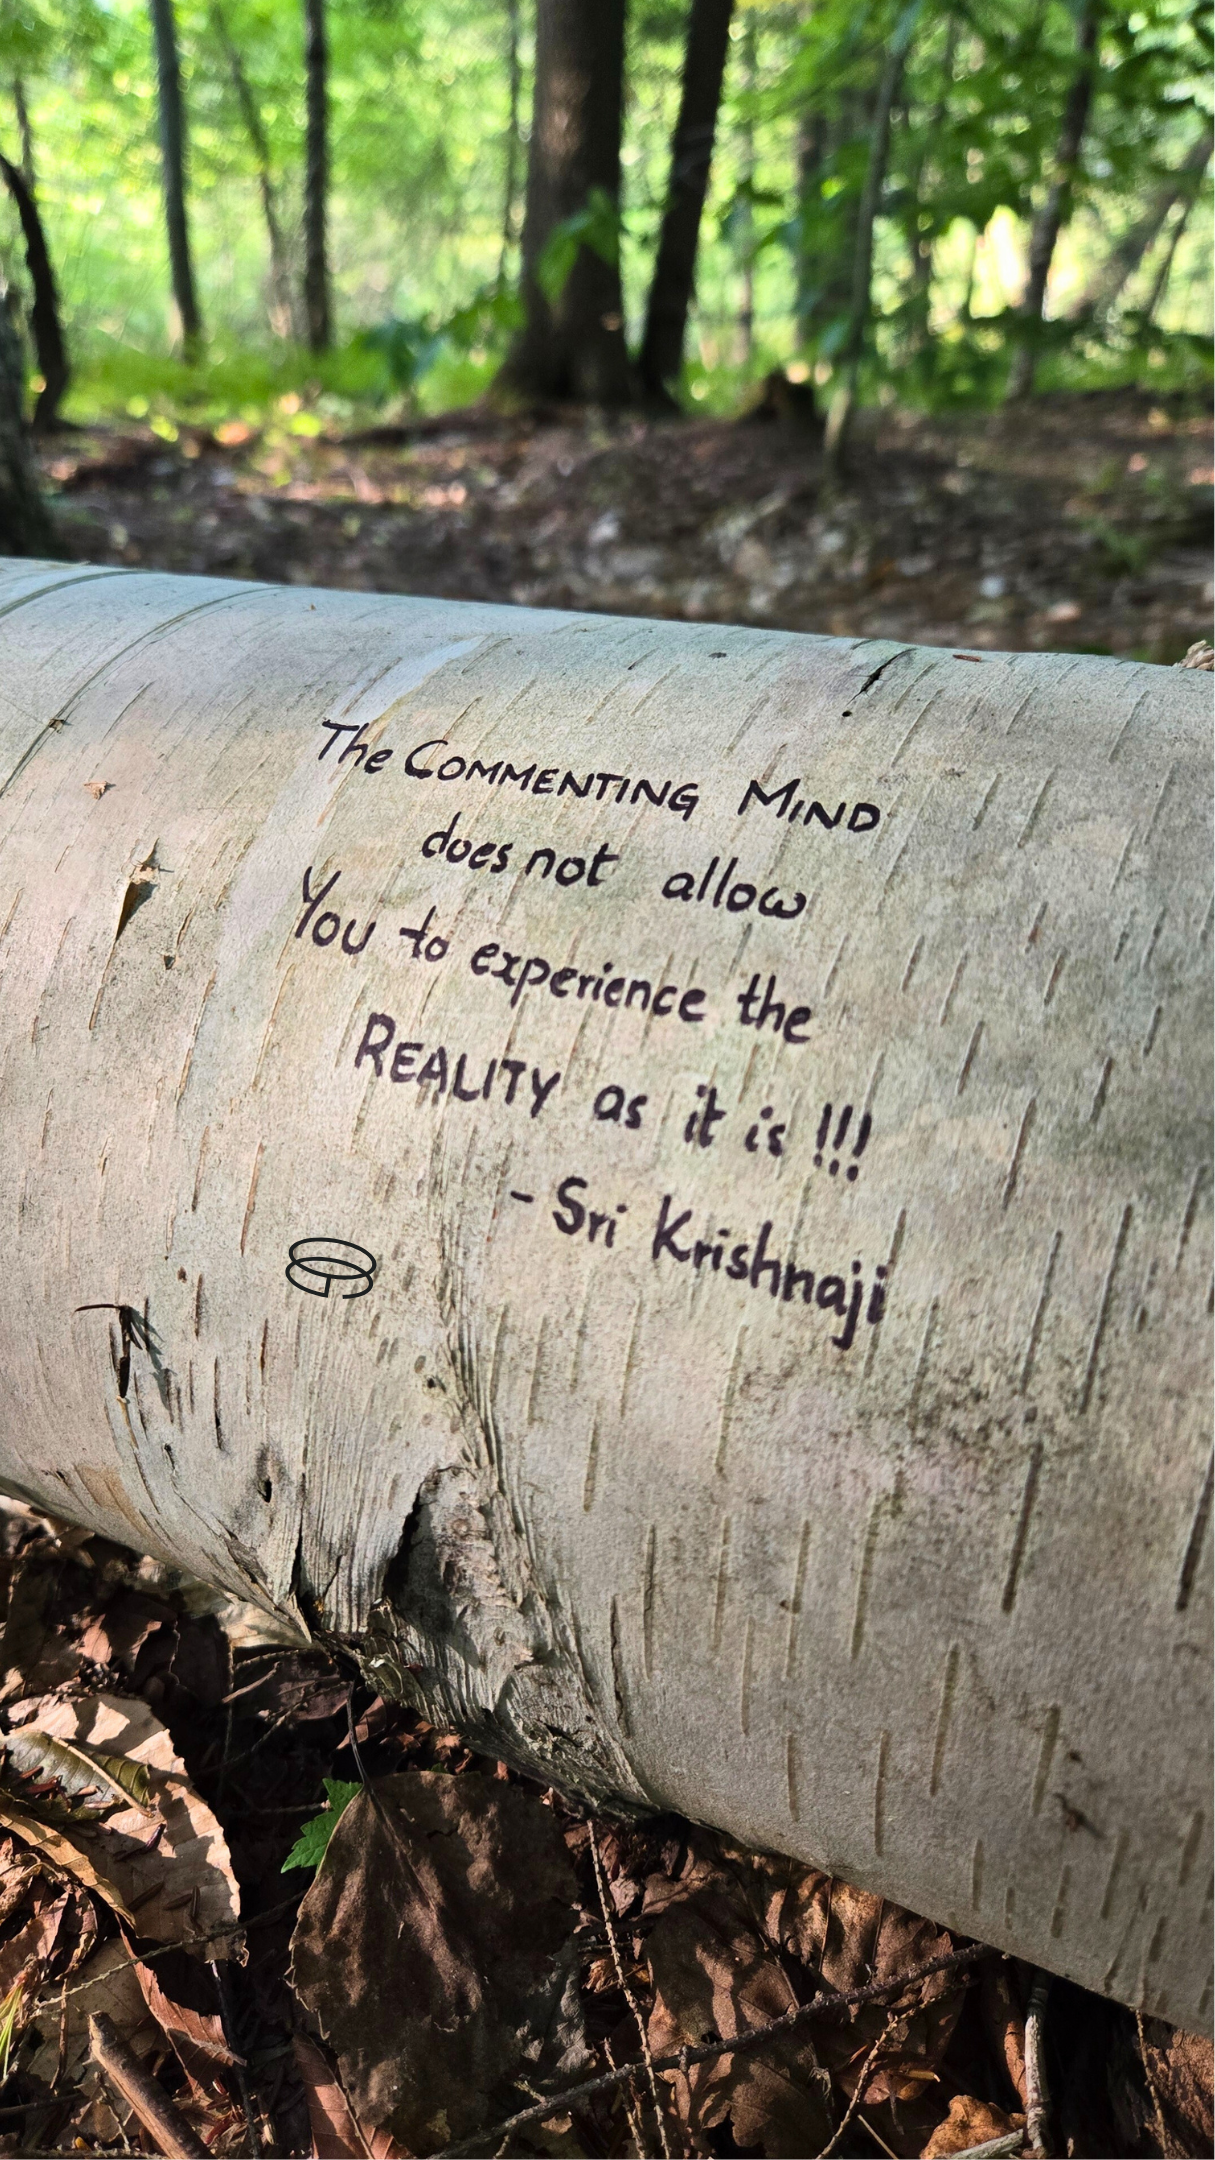 The COMMENTING MIND
does not allow
You to experience the
REALITY as it is !!!
- Sri Krishnaji